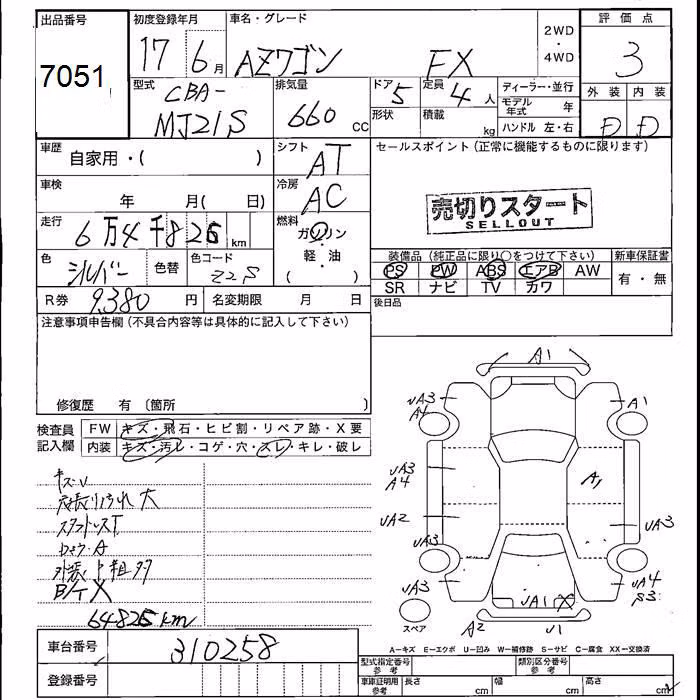 出品番号
7051
初度登録年月
17年 6月
車名・グレード
AZワゴン FX
2WD
・
4WD
評価点
3
外装 内装
D D
型式
CBA-
MJ21S
排気量
660 CC
ドア
5
形状
定員
4人
積載
kg
ディーラー・並行
モデル年式 年
ハンドル 左・右
車歴
自家用・( )
シフト
AT
セールスポイント(正常に機能するものに限ります)
売切りスタート
SELLOUT
車検
年 月( 日)
冷房
AC
走行
6万4千826km
燃料
ガソリン
・
軽・油
( )
色
シルバー
色替
色コード
Z2S
R券 9,380円
名変期限 月 日
装備品(純正品に限り○をつけて下さい)
PS PW ABS エアB AW
SR ナビ TV カワ
新車保証書
有・無
後日品
注意事項申告欄(不具合内容等は具体的に記入して下さい)
修復歴 有〔箇所 〕
検査員
記入欄
FW キズ・飛石・ヒビ割・リペア跡・X要
内装 キズ・汚レ・コゲ・穴・スレ・キレ・破レ
キズU
大
A
B/T X
64826km
A1
UA3
A4
A1
UA3
A4
A1
UA2
UA3
UA3
UA3
UA4
S3
UA1 X
スペア
A2
U1
A-キズ E-エクボ U-凹み W-補修跡 S-サビ C-腐食 XX-交換済
車台番号
310258
登録番号
型式指定番号
参考
類別区分番号
参考
車庫証明用
参考
長さ cm
幅 cm
高さ cm